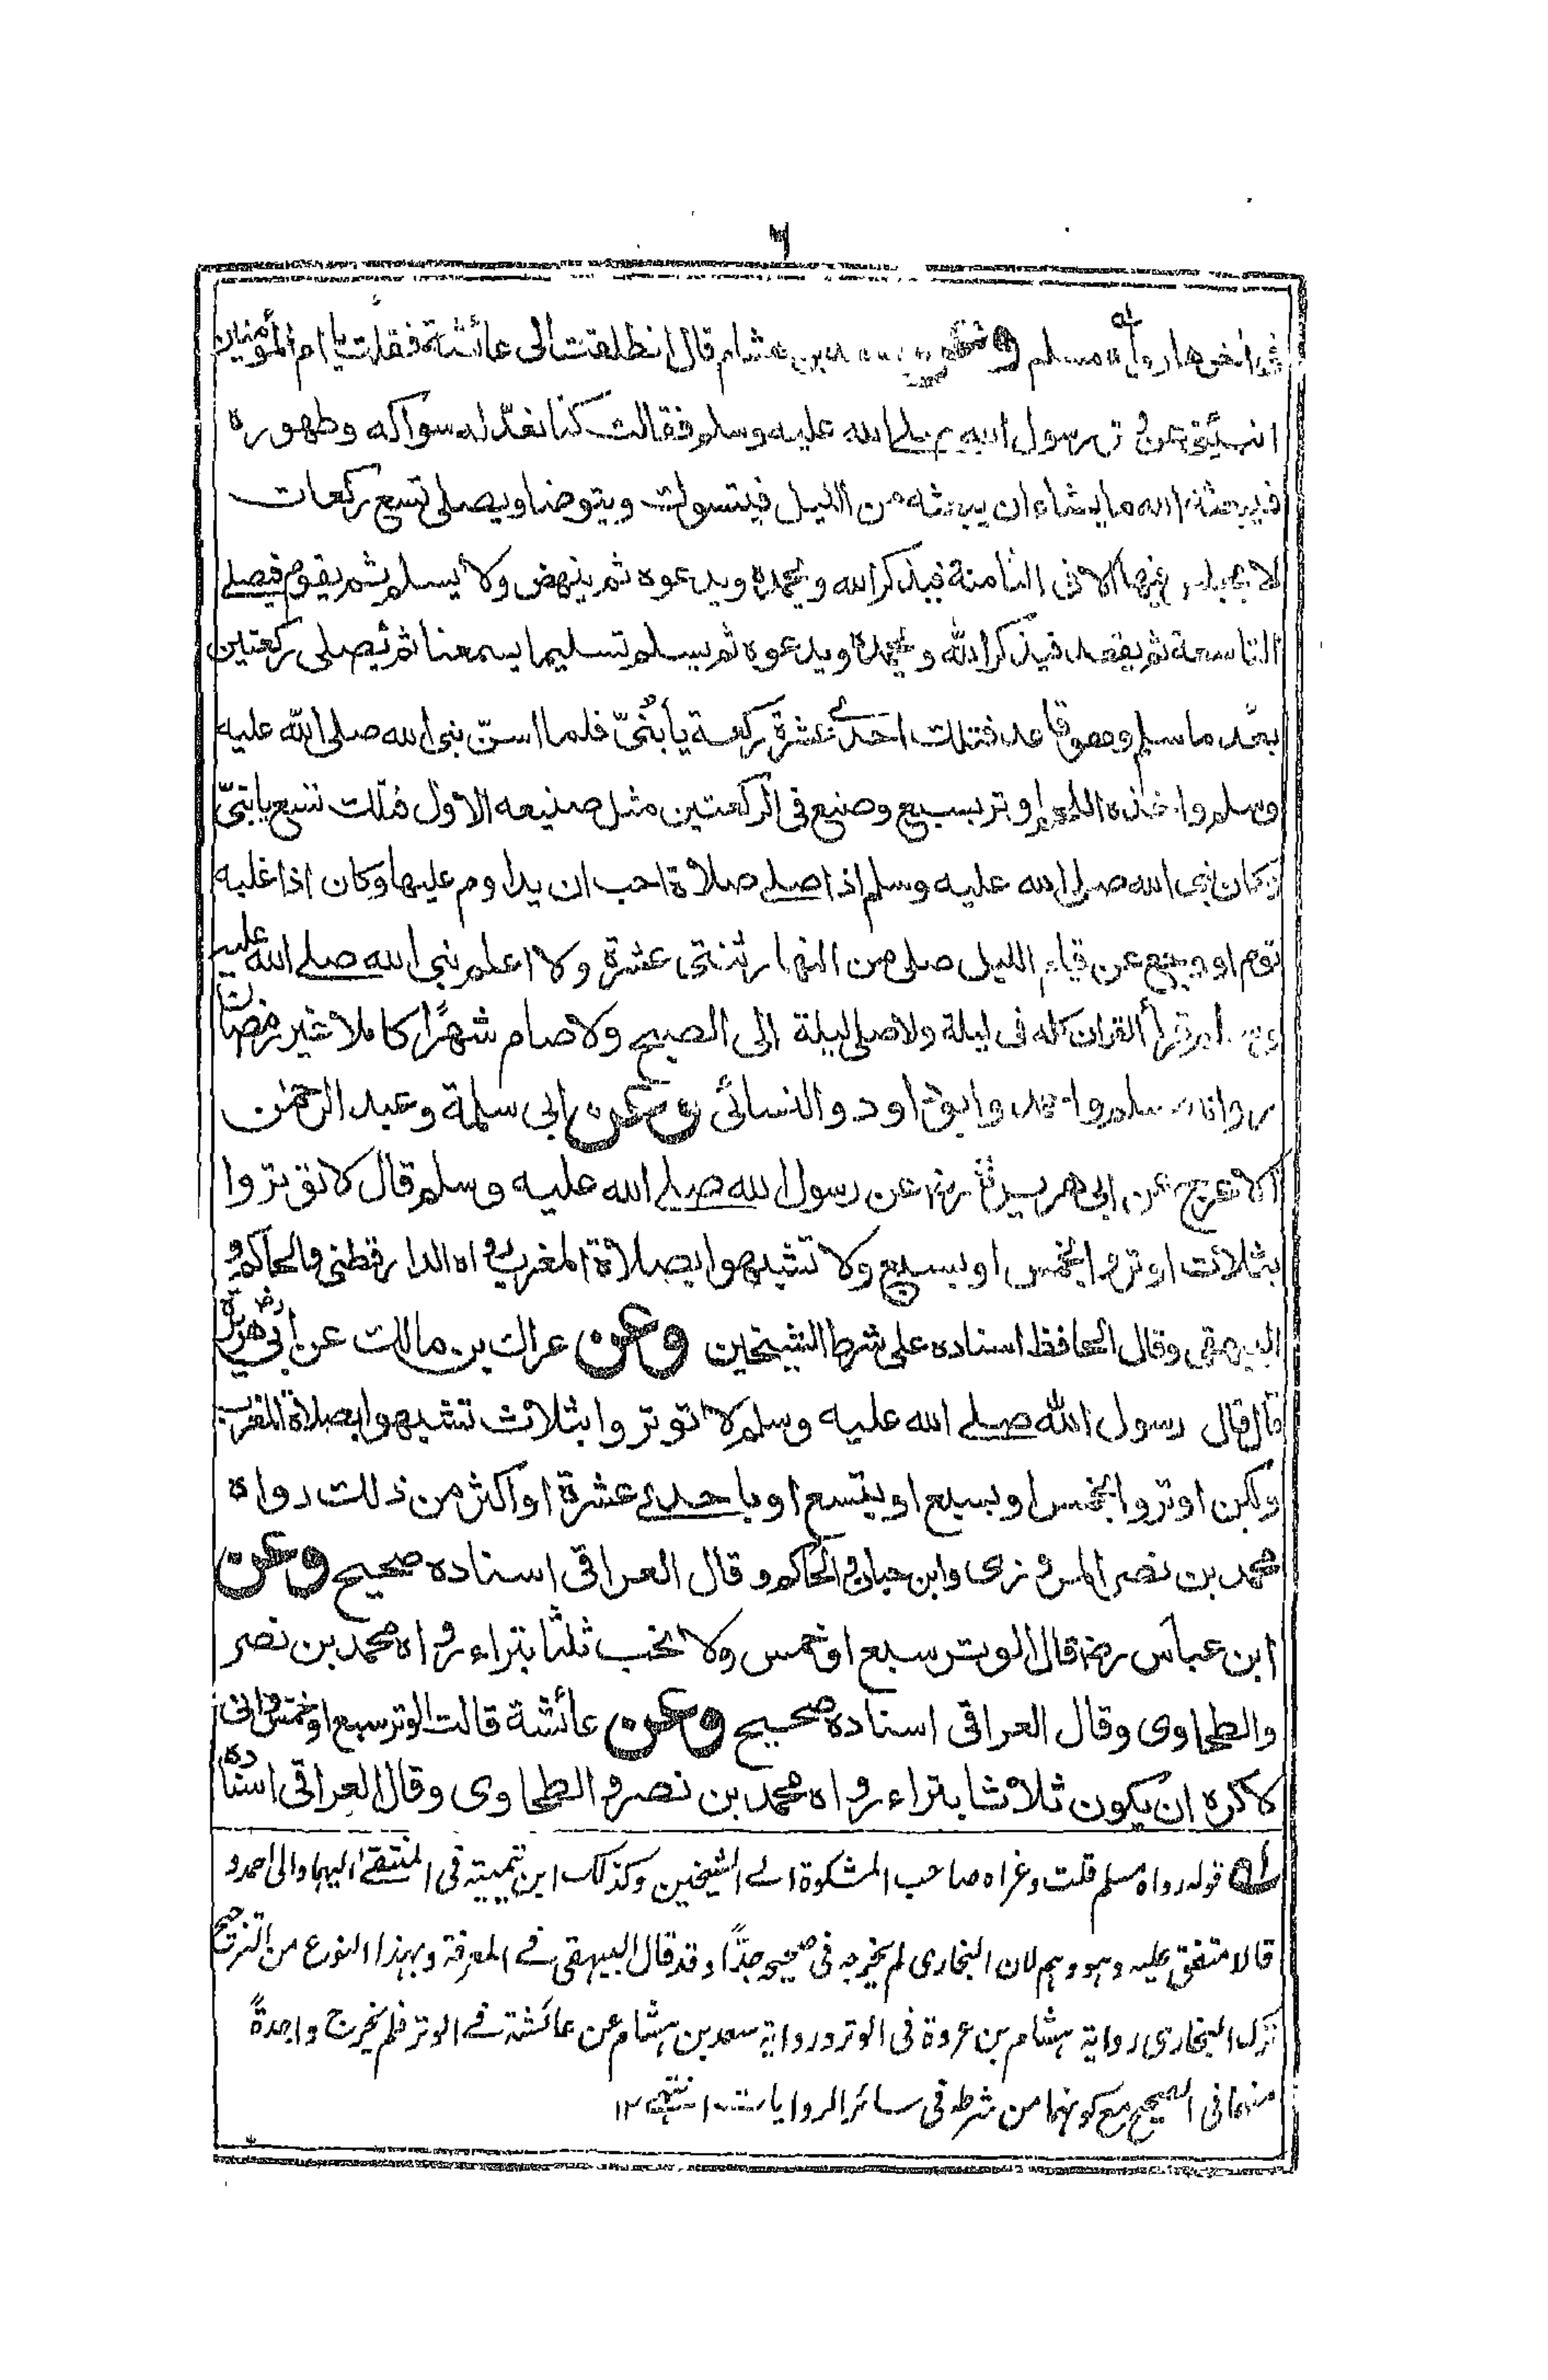 ٦
في اٰخرها رواه مسلم وعن سعد بن هشام قال انطلقت الى عائشة فقلت يا ام المؤمنين
انبئينى عن وتر رسول الله صلے الله عليه وسلم فقالت كنا نعدّ له سواكه وطهوره
فيبعثه الله ما يشاء ان يبعثه من الليل فيتسوك ويتوضا ويصلى تسع ركعات
لا يجلس فيها الا فى الثامنة فيذكر الله ويحمده ويدعوه ثم ينهض ولا يسلم ثم يقوم فيصلے
التاسعة ثم يقعد فيذكر الله ويحمده ويدعوه ثم يسلم تسليما يسمعنا ثم يصلى ركعتين
بعد ما سلم وهو قاعد فتلك احدے عشرة ركعة يا بُنىّ فلما اسنّ نبى الله صلى الله عليه
وسلم واخذه اللحم اوتر بسبع وصنع فى الركعتين مثل صنيعه الاول فتلك تسع يا بنىّ
وكان نبى الله صلى الله عليه وسلم اذا صلے صلاة احب ان يداوم عليها وكان اذا غلبه
نوم او وجع عن قيام الليل صلى من النهار ثنتى عشرة ولا اعلم نبى الله صلے الله عليه
وسلم قرأ القران كله فى ليلة ولا صلى ليلة الى الصبح ولا صام شهرًا كاملا غير رمضان
رواه مسلم واحمد وابوداود والنسائى وعن ابى سلمة وعبد الرحمٰن
الاعرج عن ابى هريرة رض عن رسول الله صلے الله عليه وسلم قال لا توتروا
بثلاث اوتروا بخمس او بسبع ولا تشبهوا بصلاة المغرب رواه الدارقطنى والحاكم و
البيهقى وقال الحافظ اسناده على شرط الشيخين وعن عراك بن مالك عن أبى هريرة رض
قال قال رسول الله صلے الله عليه وسلم لا توتروا بثلاث تشبهوا بصلاة المغرب
ولكن اوتروا بخمس او بسبع او بتسع او باحدے عشرة او اكثر من ذلك رواه
محمد بن نصر المروزى وابن حبان والحاكم وقال العراقى اسناده صحيح وعن
ابن عباس رض قال الوتر سبع او خمس ولا نحب ثلثا بتراء رواه محمد بن نصر
والطحاوى وقال العراقى اسناده صحيح وعن عائشة قالت الوتر سبع او خمس وانى
لاكره ان يكون ثلاثا بتراء رواه محمد بن نصر والطحاوى وقال العراقى اسناده
لہ قوله رواه مسلم قلت وعزاه صاحب المشكوة الے الشيخين وكذلك ابن تيمية فى المنتقے اليهما والى احمد و
قالا متفق عليه وهو وهم لان البخارى لم يخرجه فى صحيحه جدًّا وقد قال البيهقى فے المعرفة وبهذا النوع من الترجيح
ترك البخارى رواية هشام بن عروة فى الوتر ورواية سعد بن هشام عن عائشة فے الوتر فلم يخرج واحدةً
منهما فى الصحيح مع كونهما من شرطه فى سائر الروايات انتهى ١٢